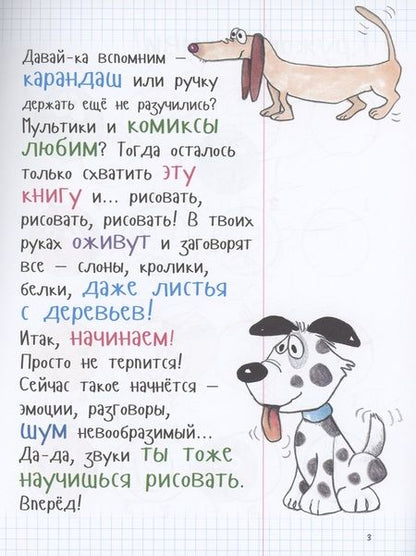 Давай-ка вспомним –
карандаш или ручку
держать ещё не разучились?
Мультики и комиксы
любим? Тогда осталось
только схватить эту
книгу и... рисовать,
рисовать, рисовать! В твоих
руках оживут и заговорят
все – слоны, кролики,
белки, даже листья
с деревьев!
Итак, начинаем!
Просто не терпится!
Сейчас такое начнётся –
эмоции, разговоры,
шум невообразимый...
Да-да, звуки ты тоже
научишься рисовать.
Вперёд!
3